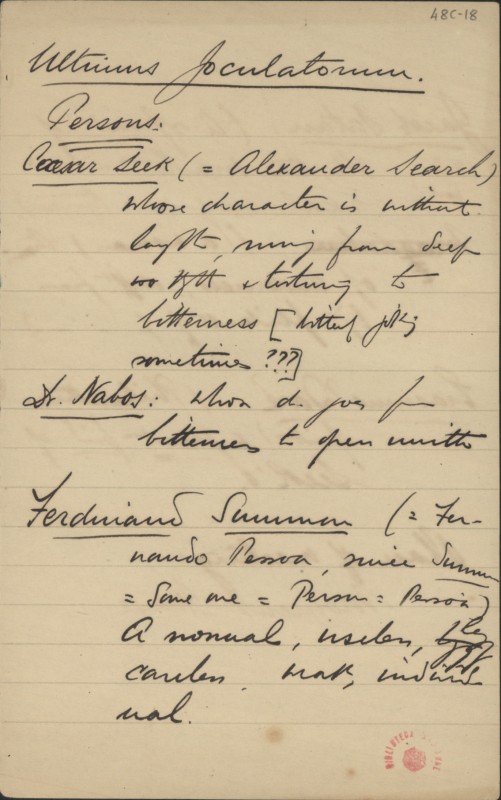 48C-18
Ultimus Joculatorum.
Persons:
Caesar Seek (= Alexander Search)
whose character is without
laughter, moving from deep
to
bitterness [ sometimes ???]
Dr. Nabos: whose d. goes from
bitterness to open mirth
Ferdinand Sumwan (= Fer-
nando Pessoa, since Sumwan
= Some one = Person = Pessoa)
A normal, useless, lazy
careless, weak, individ
ual.